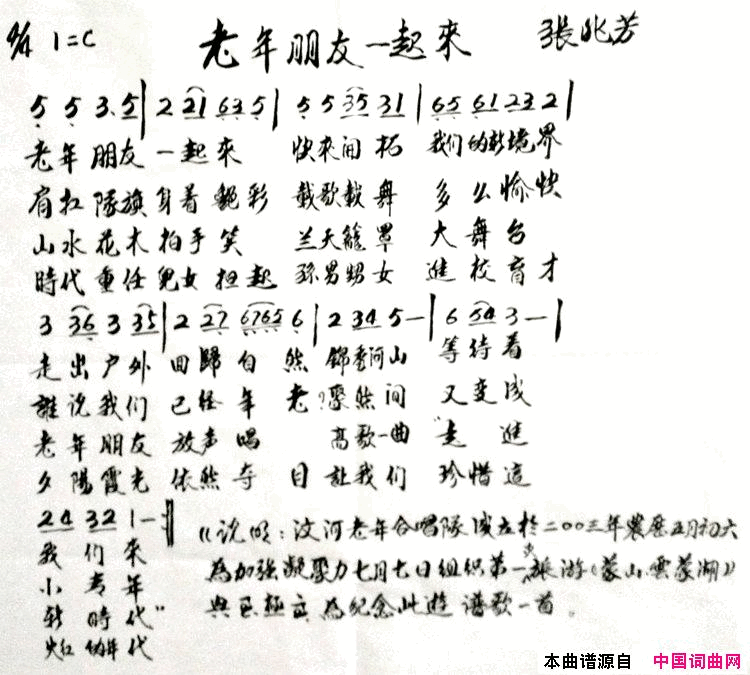 4/4 1=C 老年朋友一起來 張兆芳
5 5 3.5 | 2 21 63 5 | 5 5 35 31 | 65 61 23 2 |
老年朋友一起來 快來開拓 我们的新境界
肩扛隊旗身着艷彩 載歌載舞 多么愉快
山水花木拍手笑 兰天籠罩 大舞台
時代重任兒女担起 孫男甥女 進校育才
3 36 3 35 | 2 27 6765 6 | 2 34 5 — | 6 54 3 — |
走出户外回歸自然 錦秀河山 等待着
誰说我们已经年老? 驟然间 又变成
老年朋友放声唱 高歌一曲 "走進
夕陽霞光依然夺目 让我们 珍惜這
24 32 1 —
我们來
小青年
新時代"
火红的年代
《说明：汶河老年合唱隊成立於二〇〇三年農歷五月初六
為加强凝聚力七月七日组织第一次旅游(蒙山.雲蒙湖)
為纪念此遊谱歌一首。
本曲谱源自 中国词曲网